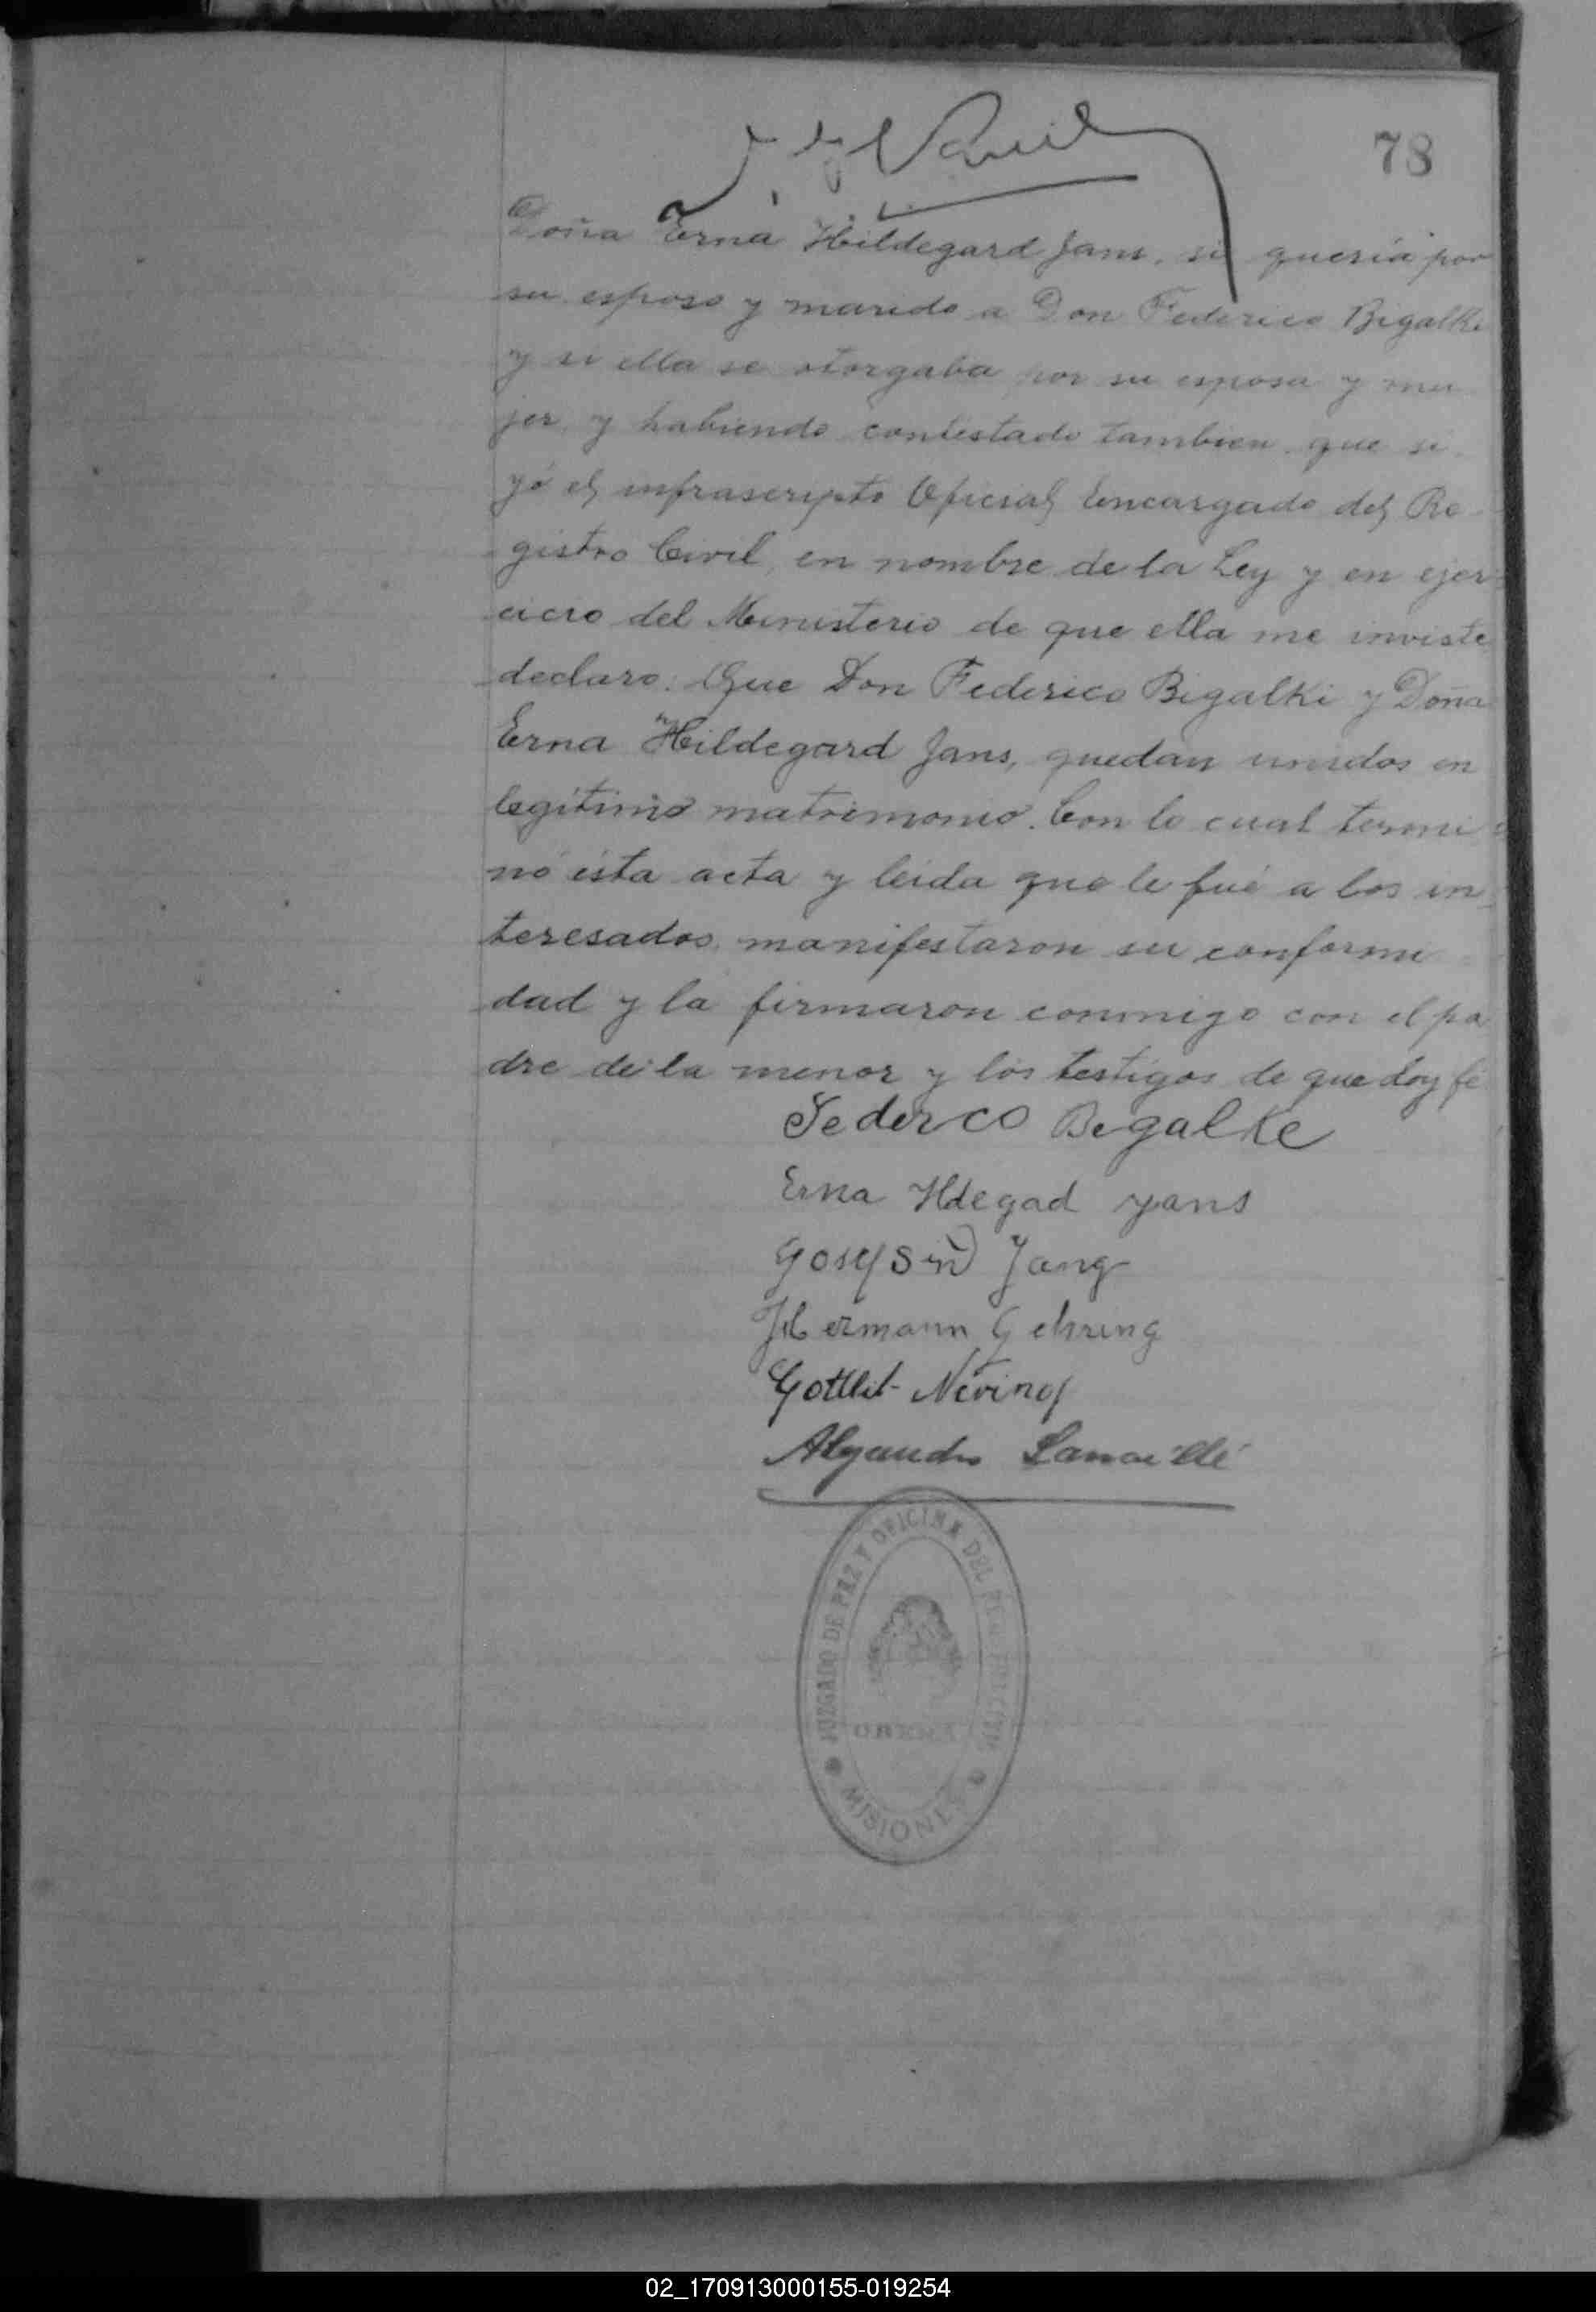 78
Doña Erna Hildegard Jans, si quería por
su esposo y marido a Don Federico Bigalki
y si ella se otorgaba por su esposa y mu
jer, y habiendo contestado tambien que si
yó el infrascripto Oficial Encargado del Re
gistro Civil, en nombre de la Ley y en ejer
cicio del Ministerio de que ella me inviste
declaro: Que Don Federico Bigalki y Doña
Erna Hildegard Jans, quedan unidos en
legítimo matrimonio. Con lo cual termi
nó ésta acta y leída que le fué a los in
teresados, manifestaron su conformi
dad y la firmaron conmigo con el pa
dre de la menor y los testigos de que doy fé
Federco Begalke
Erna Hdegad yans
Jang
Hermann Gehring
Gottlib
Alejandro
JUZGADO DE PAZ Y OFICINA DEL REGISTRO CIVIL
OBERÁ
MISIONES
02_170913000155-019254